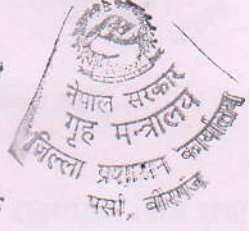 नेपाल सरकार
गृह मन्त्रालय
जिल्ला प्रशासन कार्यालय
पर्सा, बीरगंज